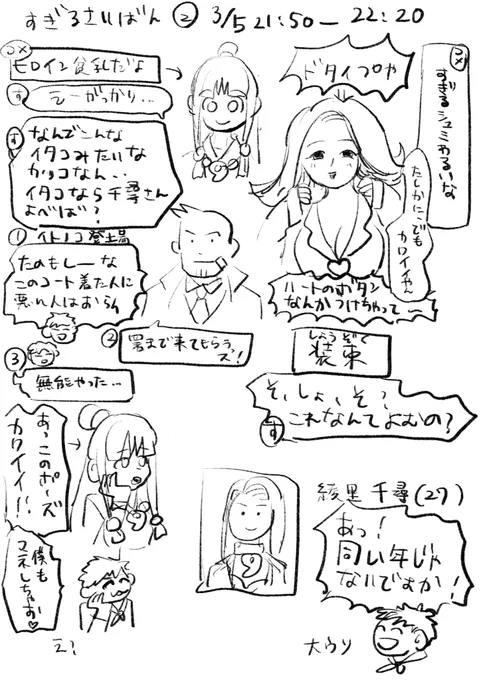 すぎるさいばん ② 3/5 21:50ー22:20
ヒロイン貧乳だよ
す えーがっかり...
す なんでこんな
イタコみたいな
カッコなん..
イタコなら千尋さん
よべば?
ドタイプや
すぎるシュミわるいな
たしかに。でも
カワイイや
ハートのボタン
なんかつけちゃって〜
① イトノコ登場
たのもしーな
このコート着たんに
悪い人はおらん
② 署まで来てもらう
ズ!
③
無能やった...
しょうぞく
装束
そ、しょ、そ?
これなんてよむの?
す
あっこのポーズ
カワイイ!!
僕も
マネしちゃお♡
え?
綾里 千尋(27)
あっ!
同い年じゃ
ないですか!
大ウソ